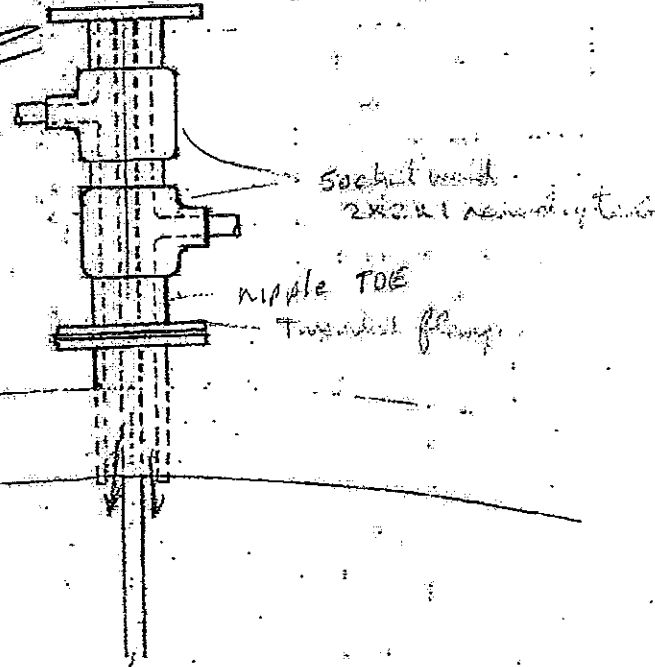 Socket weld
2x2x1 reducing tee
nipple TOE
Threaded flange